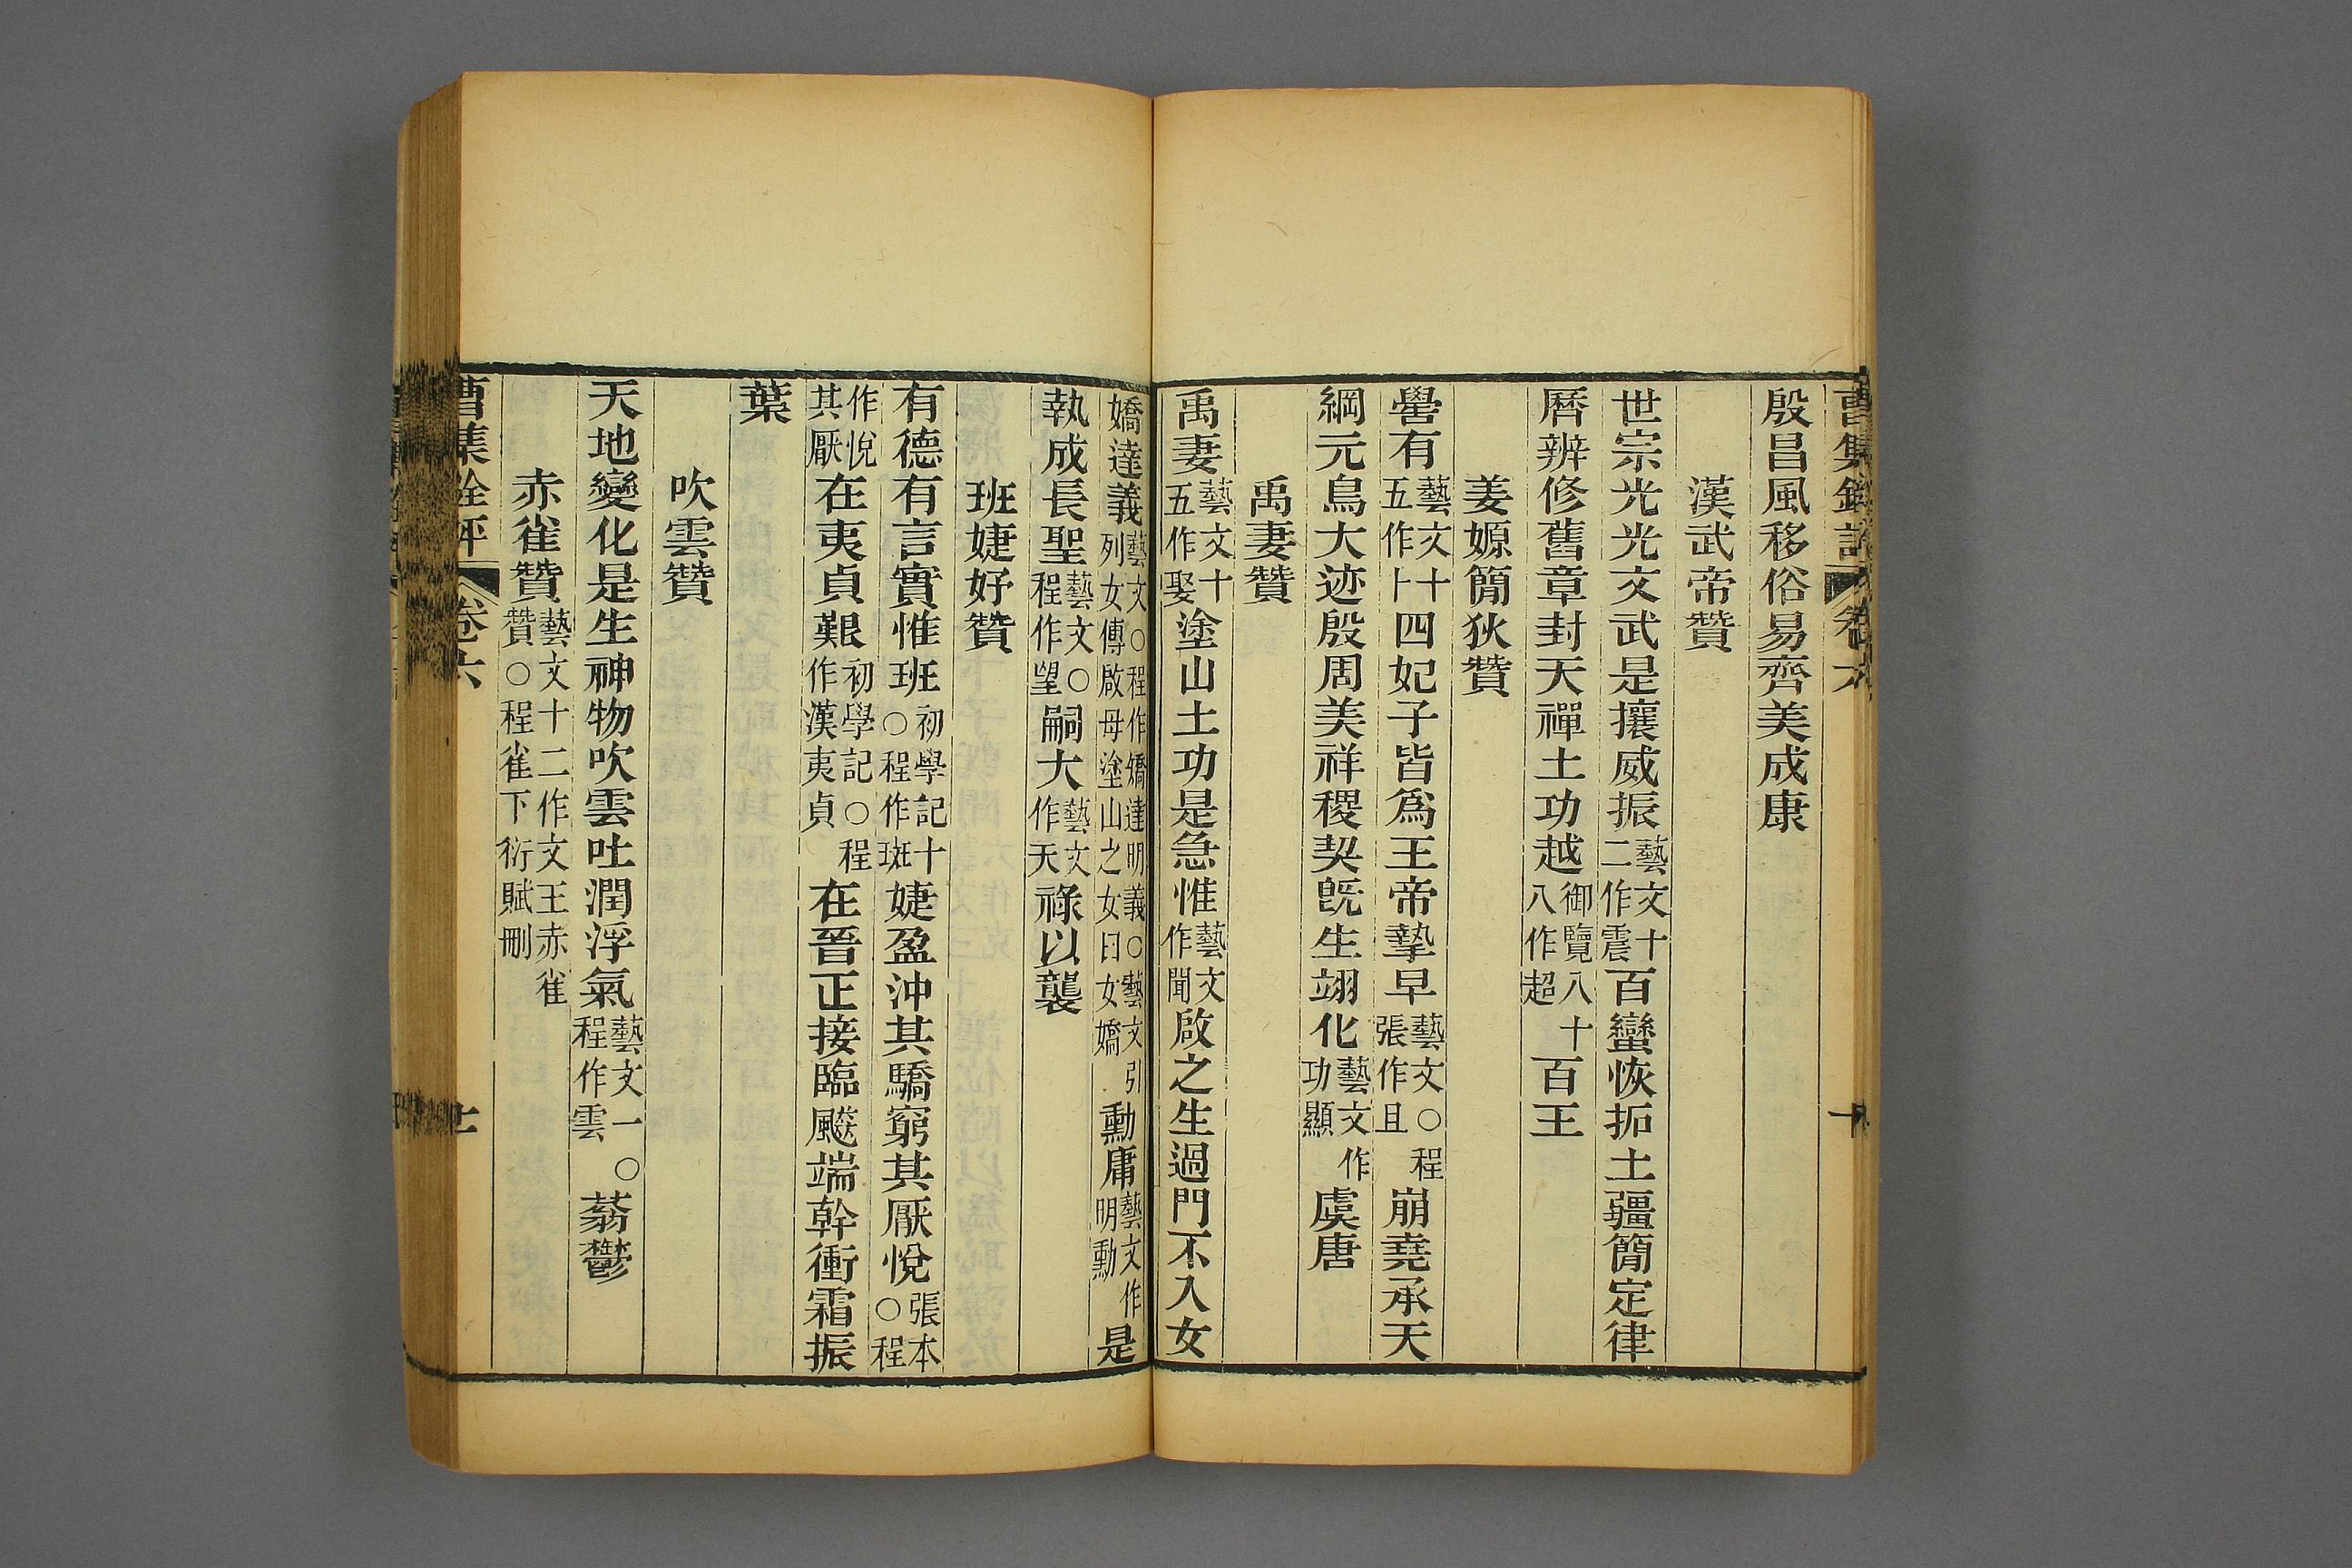 曹集銓評 卷六 十
殷昌風移俗易齊美成康
漢武帝贊
世宗光光文武是攘威振藝文十二作震百蠻恢拓土疆簡定律
曆辨修舊章封天禪土功越御覽八十八作超百王
姜嫄簡狄贊
嚳有藝文十五作卜四妃子皆爲王帝摯早藝文○程張作且崩堯承天
綱元鳥大迹殷周美祥稷契旣生翊化藝文作功顯虞唐
禹妻贊
禹妻藝文十五作娶塗山土功是急惟藝文作聞啟之生過門不入女
嬌達義藝文○程作嬌達明義○藝文引列女傳啟母塗山之女曰女嬌勳庸藝文作明勳是
執成長聖藝文○程作望嗣大藝文作天祿以襲
班婕妤贊
有德有言實惟班初學記十○程作斑婕盈沖其驕窮其厭悅張本○程
作悅其厭在夷貞艱初學記○程作漢夷貞在晉正接臨飈端幹衝霜振
葉
吹雲贊
天地變化是生神物吹雲吐潤浮氣藝文一○程作雲蓊鬱
赤雀贊藝文十二作文王赤雀贊○程雀下衍賦刪
曹集銓評 卷六 十一